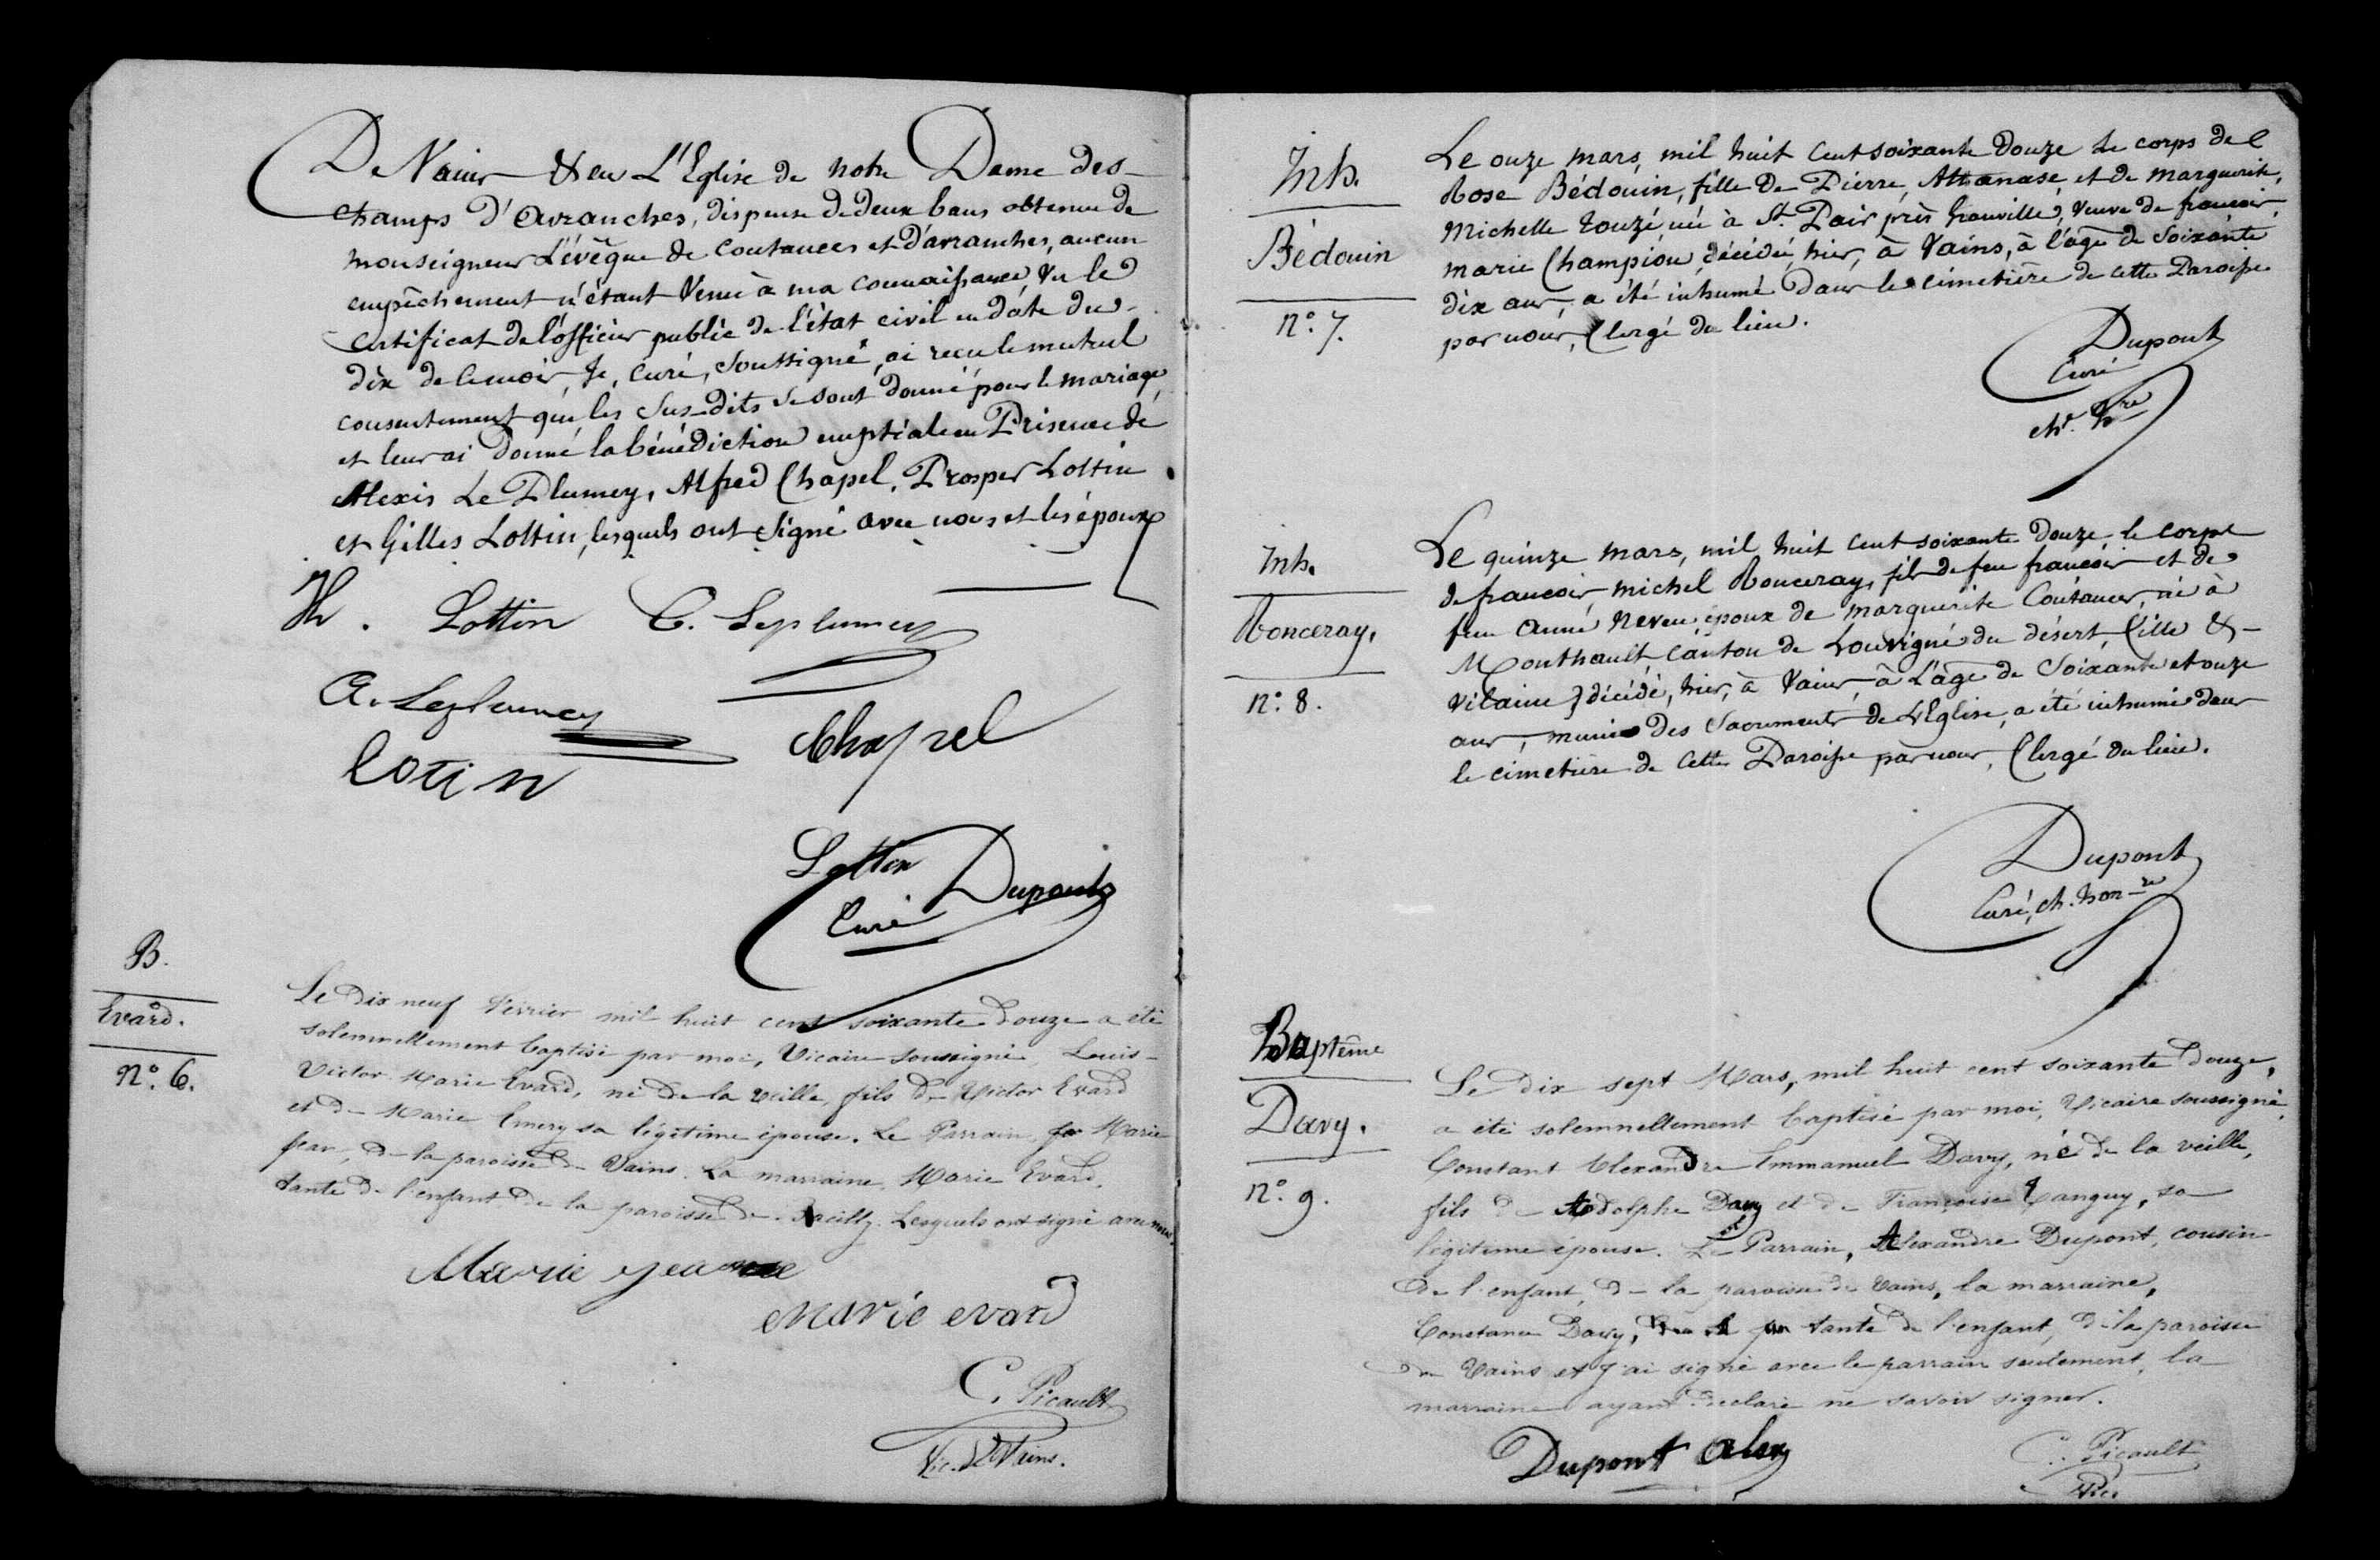 De Vains & en L'Eglise de notre Dame des
champs d'avranches, dispense de deux bans obtenue de
monseigneur L'évêque de coutances et d'avranches, aucun
empêchement n'étant venu à ma connaissance, vu le
certificat de l'officier public de l'état civil en date du
dix de ce mois, Je, curé, soussigné, ai reçu le mutuel
consentement que les sus-dits se sont donné pour le mariage
et leur ai donné la bénédiction nuptiale en Présence de
Alexis Le Plumey, Alfred Chapel, Prosper Lottin
et Gilles Lottin, lesquels ont signé avec nous et les époux
Lottin C. Leplumey
A. Leplumey
Chapel
Lotin
Lottin
Dupont
Curé
B.
Evard.
N°. 6.
Le dix neuf Février mil huit cent soixante douze a été
solennellement baptisé par moi, Vicaire soussigné, Louis-
Victor Marie Evard, né de la veille, fils de Victor Evard
et de Marie Emery sa légitime épouse. Le Parrain, Marie
de la paroisse de Vains. La marraine, Marie Evard,
tante de l'enfant de la paroisse de Lesquels ont signé avec moi.
Marie
Marie evard
C. Picault
Vic. de Vains.
Inh.
Bédouin
n°. 7.
Le onze mars, mil huit cent soixante douze le corps de
Rose Bédouin, fille de Pierre, Athanase et de marguerite,
Michelle Touzé, née à St. Pair près Granville, veuve de françois
marie Champion, décédée, hier, à Vains, à l'âge de Soixante
dix ans, a été inhumé dans le cimetière de cette Paroisse
par nous, Clergé du lieu.
Dupont
Curé
ch. hre
Inh.
Ronceray,
n°. 8.
Le quinze mars, mil huit cent soixante douze, le corps
de françois, michel Ronceray, fils de feu françois et de
feu anne Neveu, époux de marguerite Coutances, né à
Monthault, canton de Louvigné du désert, (ille &
vilaine) décédé, hier, à Vains, à L'âge de Soixante et onze
ans, muni des Sacrements de L'Eglise, a été inhumé dans
le cimetière de cette Paroisse par nous, Clergé du lieu.
Dupont
Curé, ch. hon-re
Baptême
Davy.
n°. 9.
Le dix sept Mars, mil huit cent soixante douze,
a été solennellement baptisé par moi, Vicaire soussigné,
Constant Alexandre Emmanuel Davy, né de la veille,
fils de Adolphe Davy et de Françoise Tanguy, sa
légitime épouse. Le Parrain, Alexandre Dupont, cousin
de l'enfant, de la paroisse de Vains, la marraine,
Constance Davy, tante de l'enfant, de la paroisse
de Vains et j'ai signé avec le parrain seulement, la
marraine ayant déclaré ne savoir signer.
Dupont alex
C. Picault
Vic.